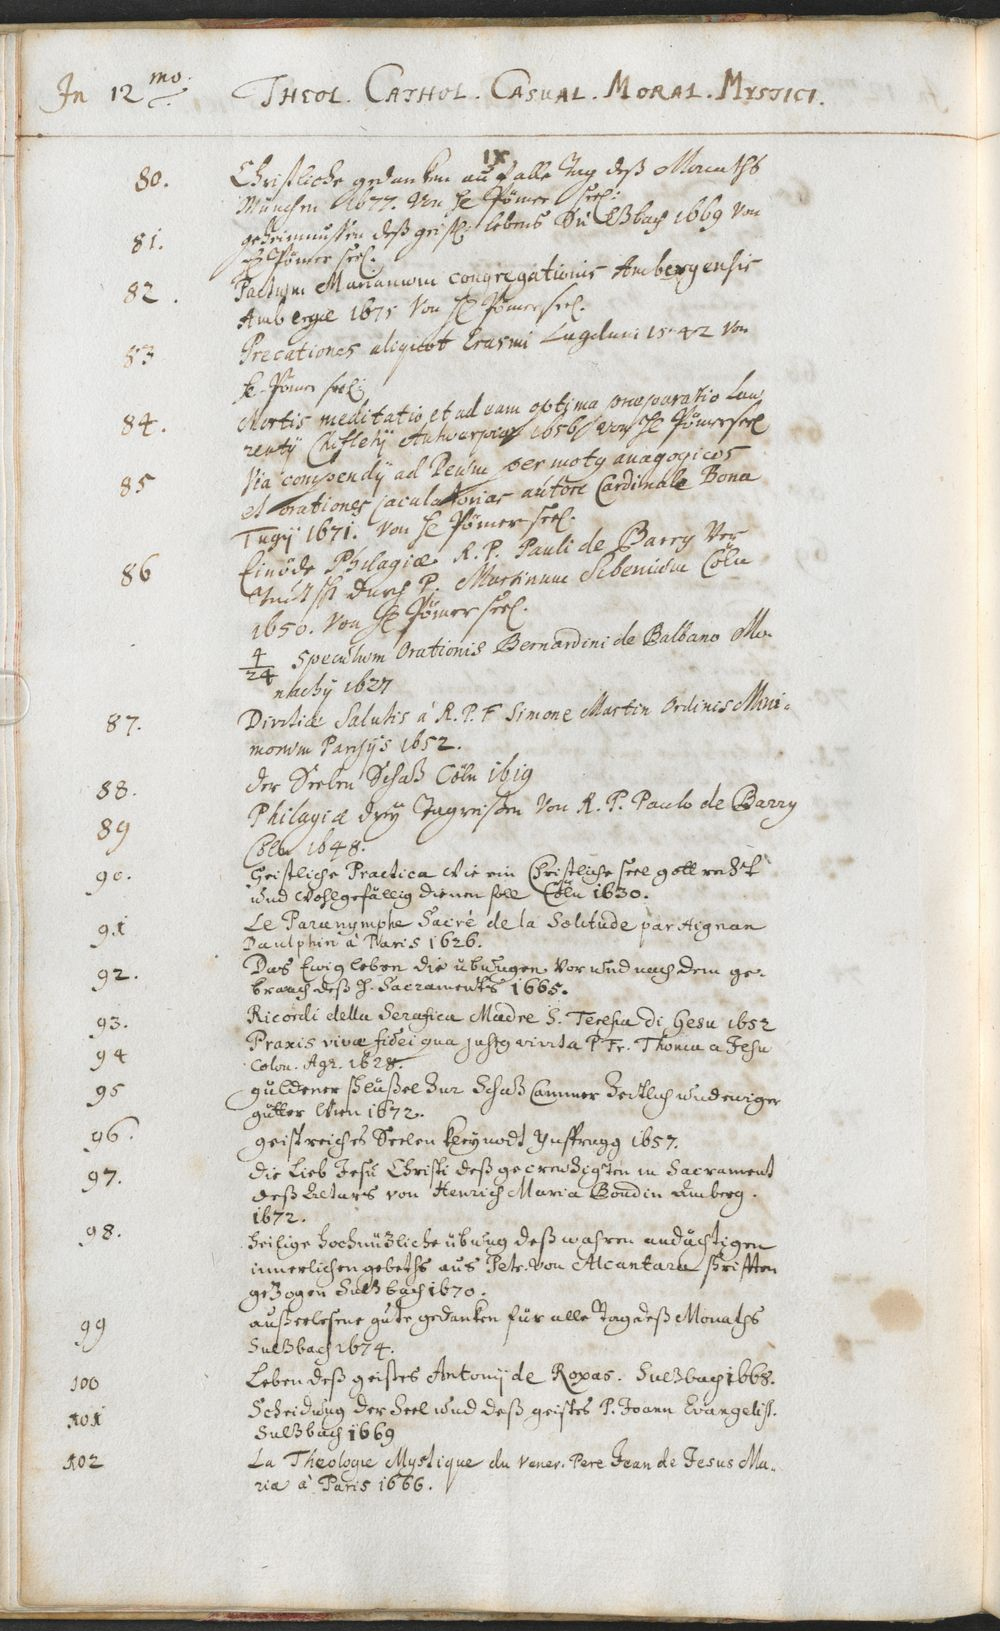 In 12mo. THEOL. CATHOL. CASUAL. MORAL. MYSTICI.
IX
80. Christliche gedanken auf alle Tag deß Monaths
München 1677. Von H. Pömer seel:
81. geheimnussen deß geistl: lebens Sultzbach 1669 von
H. Pömer seel.
82. Pactum Marianum congregationis Ambergensis
Ambergae 1675 Von H. Pömer seel.
83 Precationes aliquot Erasmi Lugduni 1542 Von
H. Pömer seel:
84. Mortis meditatio et ad eam optima praeparatio Lau
rentij Chifletij Antverpiae 1656 von H. Pömer seel
85 Via compendij ad Deum per motus anagogicos
et orationes jaculatorias autore Cardinale Bona
Tugij 1671. Von H. Pömer seel.
86 Einöde Philagiae R. P. Pauli de Barry Ver
durch P. Martinum Sibenium Cöln
1650. Von H. Pömer seel.
4/24 Speculum Orationis Bernardini de Balbano Mo-
nachij 1627
87. Divitiae Salutis à R. P. F Simone Martin Ordinis Mini-
morum Parisijs 1652.
88. der Seelen Schatz Cöln 1619
89 Philagiae drey Tagreisen Von R. P. Paulo de Barry
Cöln 1648.
90. Geistliche Practica Wie ein Christliche seel gott recht
und wohlgefällig dienen soll Cöln 1630.
91 Le Paranymphe Sacré de la Solitude par Aignan
Daulphin à Paris 1626.
92. Das Ewig leben die ubungen vor und nach dem ge-
brauch deß H. Sacraments 1665.
93. Ricordi della Serafica Madre S. Teresia di Gesu 1652
94 Praxis vivae fidei qua justus vivit a P Fr. Thoma a Jesu
Colon. Agr. 1628.
95 guldener schlußel zur Schatz Cammer Zeitlich und ewiger
gütter Wien 1672.
96. geistreiches Seelen kleynodt Ynsprugg 1657.
97. die Lieb Jesu Christi deß gecreutzigten in Sacrament
deß Altars von Henrich Maria Boudin Amberg.
1672.
98. heilige hochnützliche übung deß wahren andächtigen
innerlichen gebeths aus Petr. von Alcantara schrifften
gezogen Sultzbach 1670.
99 außerlesene gute gedanken für alle Tag deß Monaths
Sultzbach 1674.
100 Leben deß geistes Antonij de Roxas. Sultzbach 1668.
101 Scheidung der Seel und deß geistes P. Joann Evangelist.
Sultzbach 1669
102 La Theologie Mystique du Vener. Pere Jean de Jesus Ma-
ria à Paris 1666.